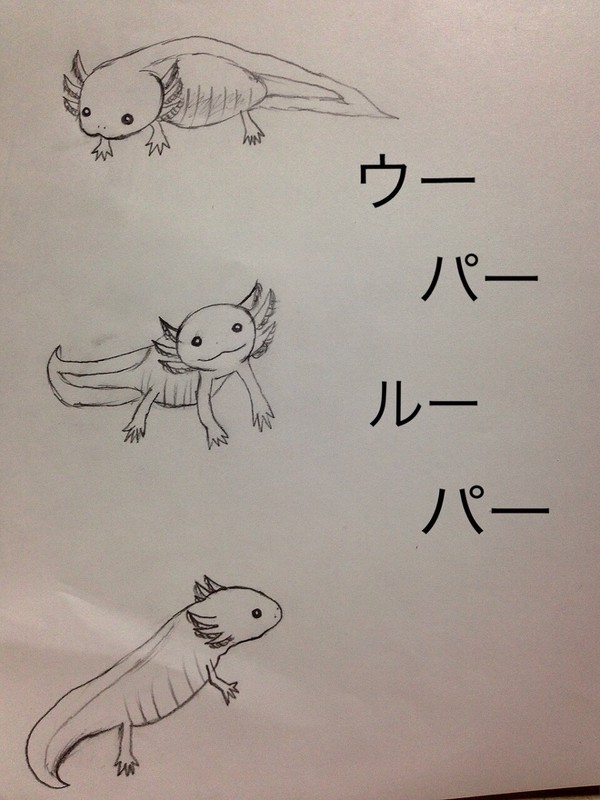 ウー
パー
ルー
パー